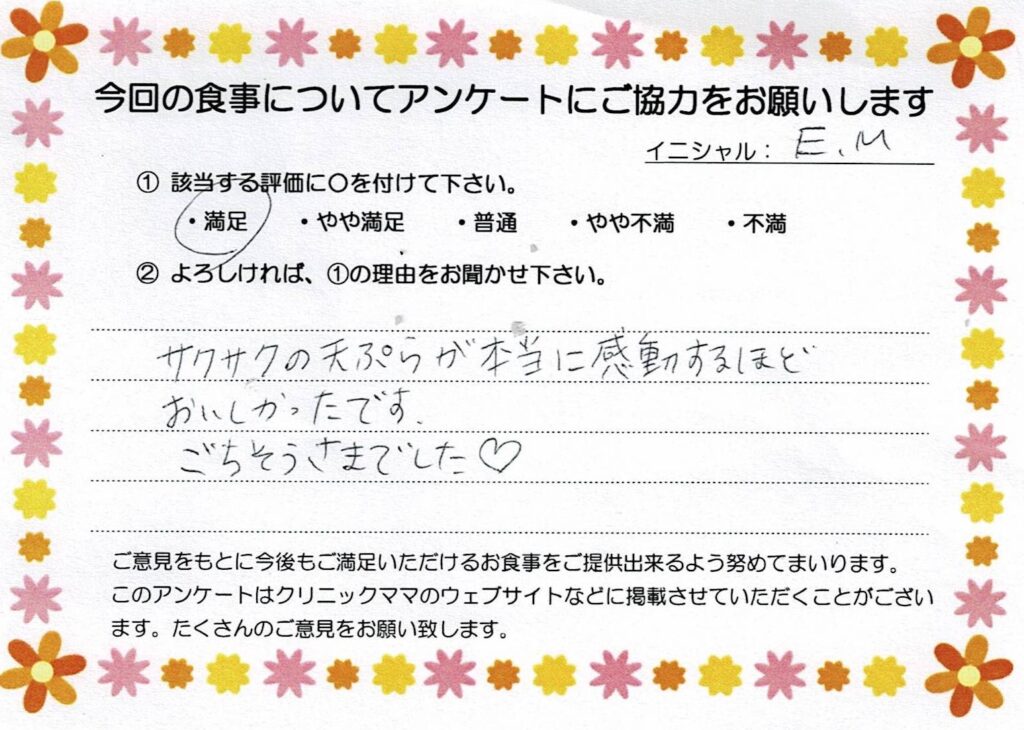 今回の食事についてアンケートにご協力をお願いします
イニシャル： E.M
① 該当する評価に〇を付けて下さい。
・満足 ・やや満足 ・普通 ・やや不満 ・不満
② よろしければ、①の理由をお聞かせ下さい。
サクサクの天ぷらが本当に感動するほど
おいしかったです.
ごちそうさまでした♡
ご意見をもとに今後もご満足いただけるお食事をご提供出来るよう努めてまいります。
このアンケートはクリニックママのウェブサイトなどに掲載させていただくことがござい
ます。たくさんのご意見をお願い致します。